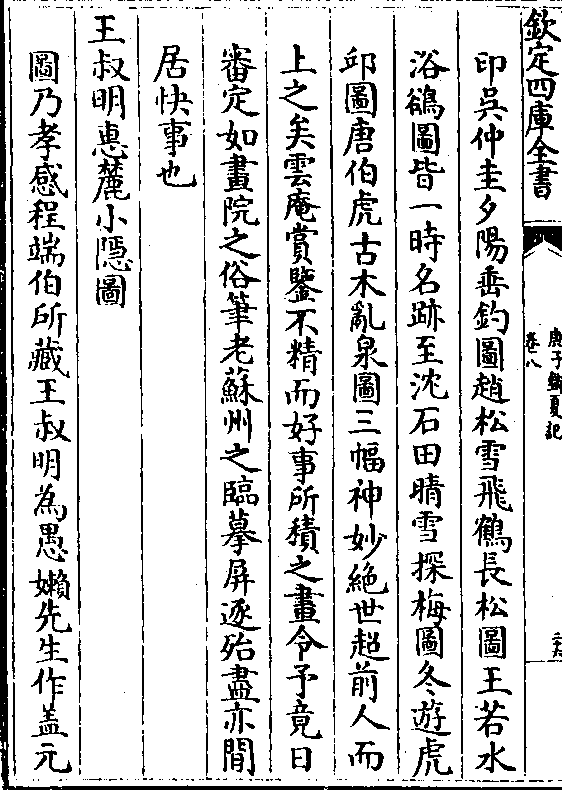 欽定四庫全書
庚子銷夏記
卷八
二六
印吳仲圭夕陽垂釣圖趙松雪飛鶴長松圖王若水
浴鵝圖皆一時名跡至沈石田晴雪探梅圖冬遊虎
邱圖唐伯虎古木亂泉圖三幅神妙絶世超前人而
上之矣雲庵賞鑒不精而好事所積之畫令予竟日
審定如畫院之俗筆老蘇州之臨摹屏逐殆盡亦閒
居快事也
王叔明惠麓小隱圖
圖乃孝感程端伯所藏王叔明為愚嬾先生作盖元